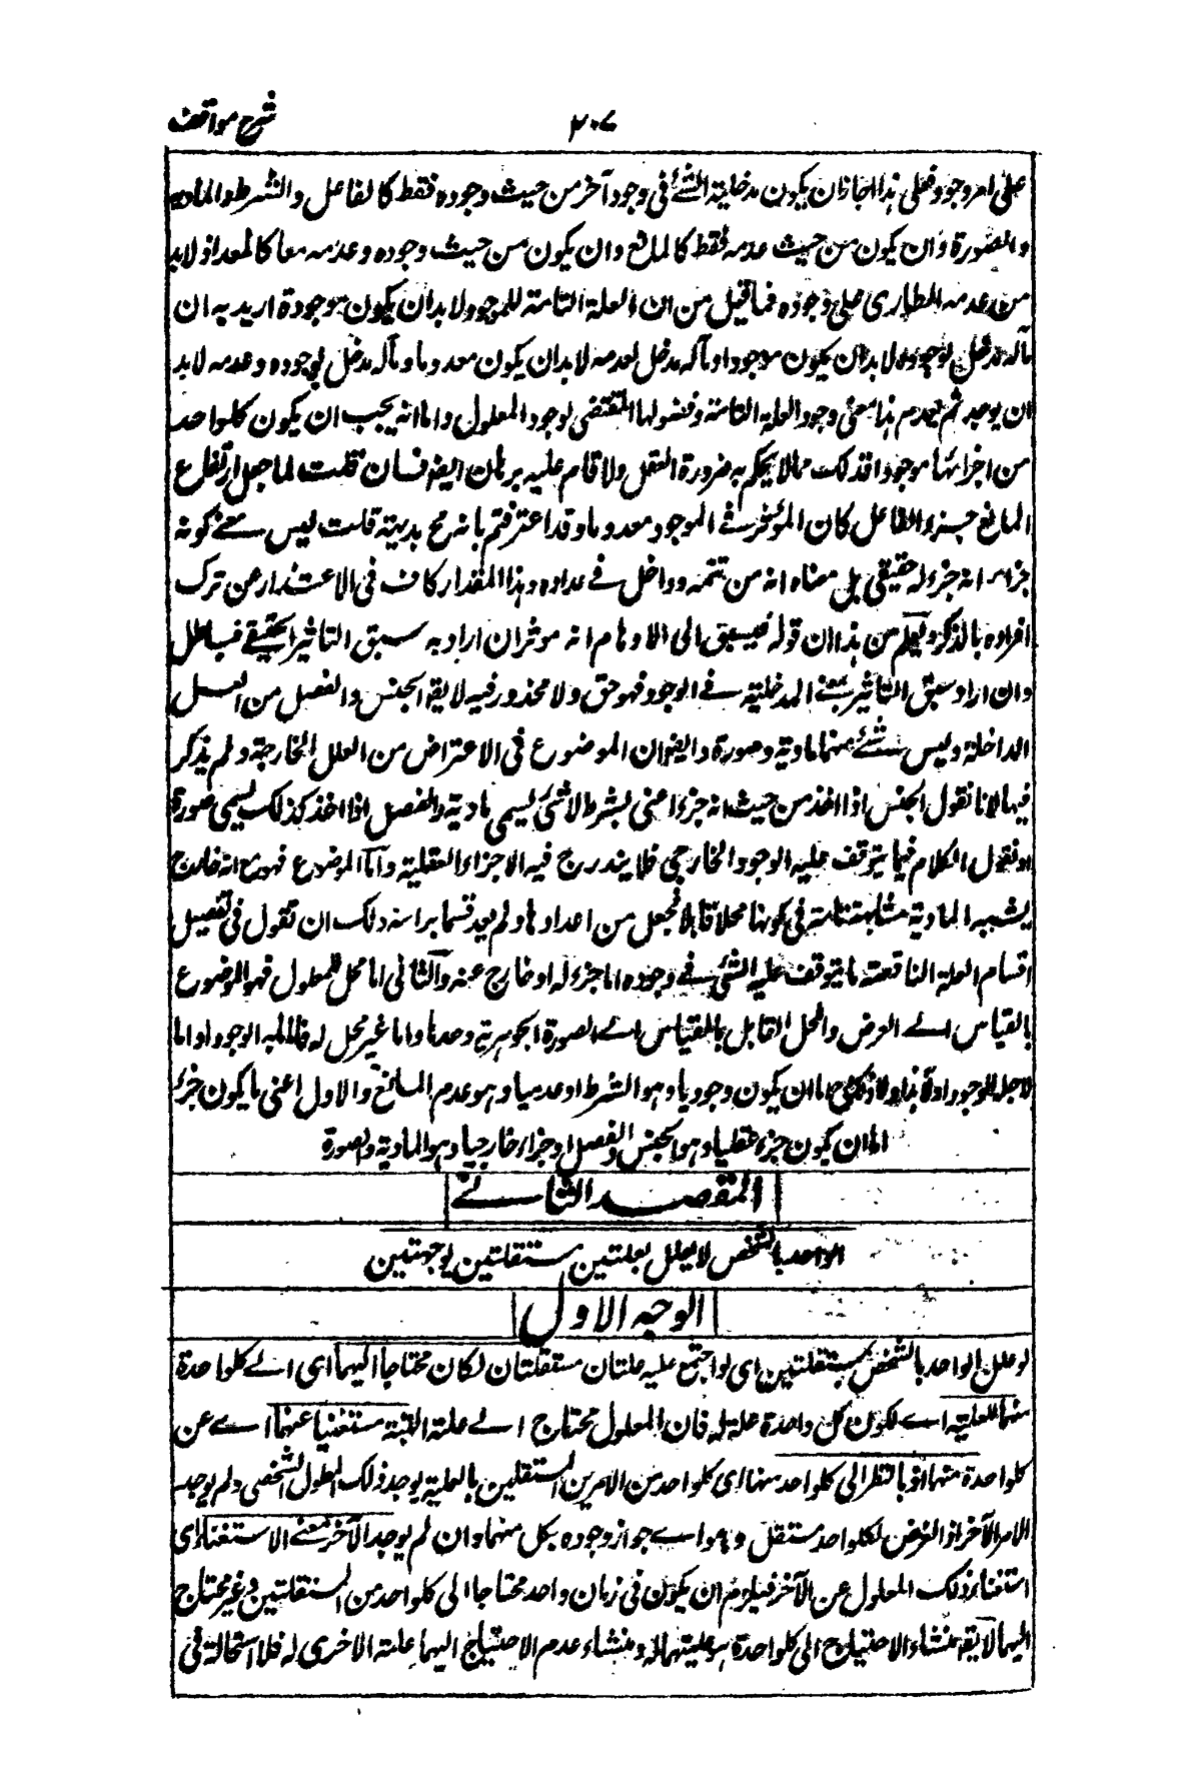 شرح مواقف
٢٠٧
على امر وجود فعلى هذا جاز ان يكون مدخلية الشئ فى وجود آخر من حيث وجوده فقط كالفاعل والشرط والمادة
والصورة وان يكون من حيث عدمه فقط كالمانع وان يكون من حيث وجوده وعدمه معا كالمعد اذ لابد
من عدمه الطارى على وجوده فما قيل من ان العلة التامة للموجود لابد ان يكون موجودة اريد به ان
ماله مدخل بوجوده لابد ان يكون موجودا وماله مدخل بعدمه لابد ان يكون معدوما وماله مدخل بوجوده وعدمه لابد
ان يوجد ثم يعدم هذا معنى وجود العلة التامة وحصولها المقتضى لوجود المعلول واما انه يجب ان يكون كلواحد
من اجزائها موجودا فذلك مما لا يحكم به ضرورة العقل ولا قام عليه برهان ايضا فان قلت لما جعل ارتفاع
المانع جزء الفاعل كان المؤثر فى الموجود معدوما وقد اعترفتم بانه مح بديهة قلت ليس معنى كونه
جزءا انه جزء له حقيقى بل معناه انه من تتمته وداخل فى عداده وهذا المقدار كاف فى الاعتذار عن ترك
افراده بالذكر ويعلم من هذا ان قوله فيسبق الى الاوهام انه موثر ان اراد به سبق التاثير الحقيقى فباطل
وان اراد سبق التاثير بمعنى المدخلية فى الوجود فهو حق ولا محذور فيه لا يقال الجنس والفصل من العلل
الداخلة وليس شئ منهما مادية وصورة وايضا الموضوع فى الاعتراض من العلل الخارجة ولم يذكر
فيها لانا نقول الجنس اذا اخذ من حيث انه جزء اعنى بشرط لا شئ يسمى مادية والفصل اذا اخذ كذلك يسمى صورة
او نقول الكلام فيما يتوقف عليه الوجود الخارجى فلا يندرج فيه الاجزاء العقلية واما الموضوع فهو مع انه خارج
يشبه المادية مشابهة تامة فى كونها محلا قابلا فجعل من اعدادها ولم يعد قسما براسه ولك ان تقول فى تفصيل
اقسام العلة الناقصة ما يتوقف عليه الشئ فى وجوده اما جزء له او خارج عنه والثانى اما محل للمعلول فهو الموضوع
بالقياس الى العرض والمحل القابل بالقياس الى الصورة الجوهرية وحدها واما غير محل له فاما ما به الوجود او اما
لاجله الوجود اولا هذا ولا ذاك فاما ان يكون وجوديا وهو الشرط او عدميا وهو عدم المانع والاول اعنى ما يكون جزء
اما ان يكون جزء عقليا وهو الجنس والفصل او جزاء خارجيا وهو المادية والصورة
المقصد الثانى
الواحد بالشخص لا يعلل بعلتين مستقلتين لوجهتين
الوجه الاول
لو علل الواحد بالشخص بمستقلتين اى لو اجتمع عليه علتان مستقلتان لكان محتاجا اليهما اى الى كلواحدة
منهما للعلية اى لكون كل واحدة علة له فان المعلول محتاج الى علته البتة مستغنيا عنهما اى عن
كلواحدة منهما اذ بالنظر الى كلواحد منهما اى كلواحد من الامرين المستقلين بالعلية يوجد ذلك المعلول الشخصى ولم يوجد
الامر الآخر اذ الفرض لكلواحد مستقل وهو اى جواز وجوده بكل منهما وان لم يوجد الآخر معنى الاستغناء اى
استغناء ذلك المعلول عن الآخر فيلزم ان يكون فى زمان واحد محتاجا الى كلواحد من المستقلتين وغير محتاج
اليهما لا يقال منشاء الاحتياج الى كلواحدة هو عليتهما له ومنشاء عدم الاحتياج اليهما علية الاخرى له فلا استحالة فى